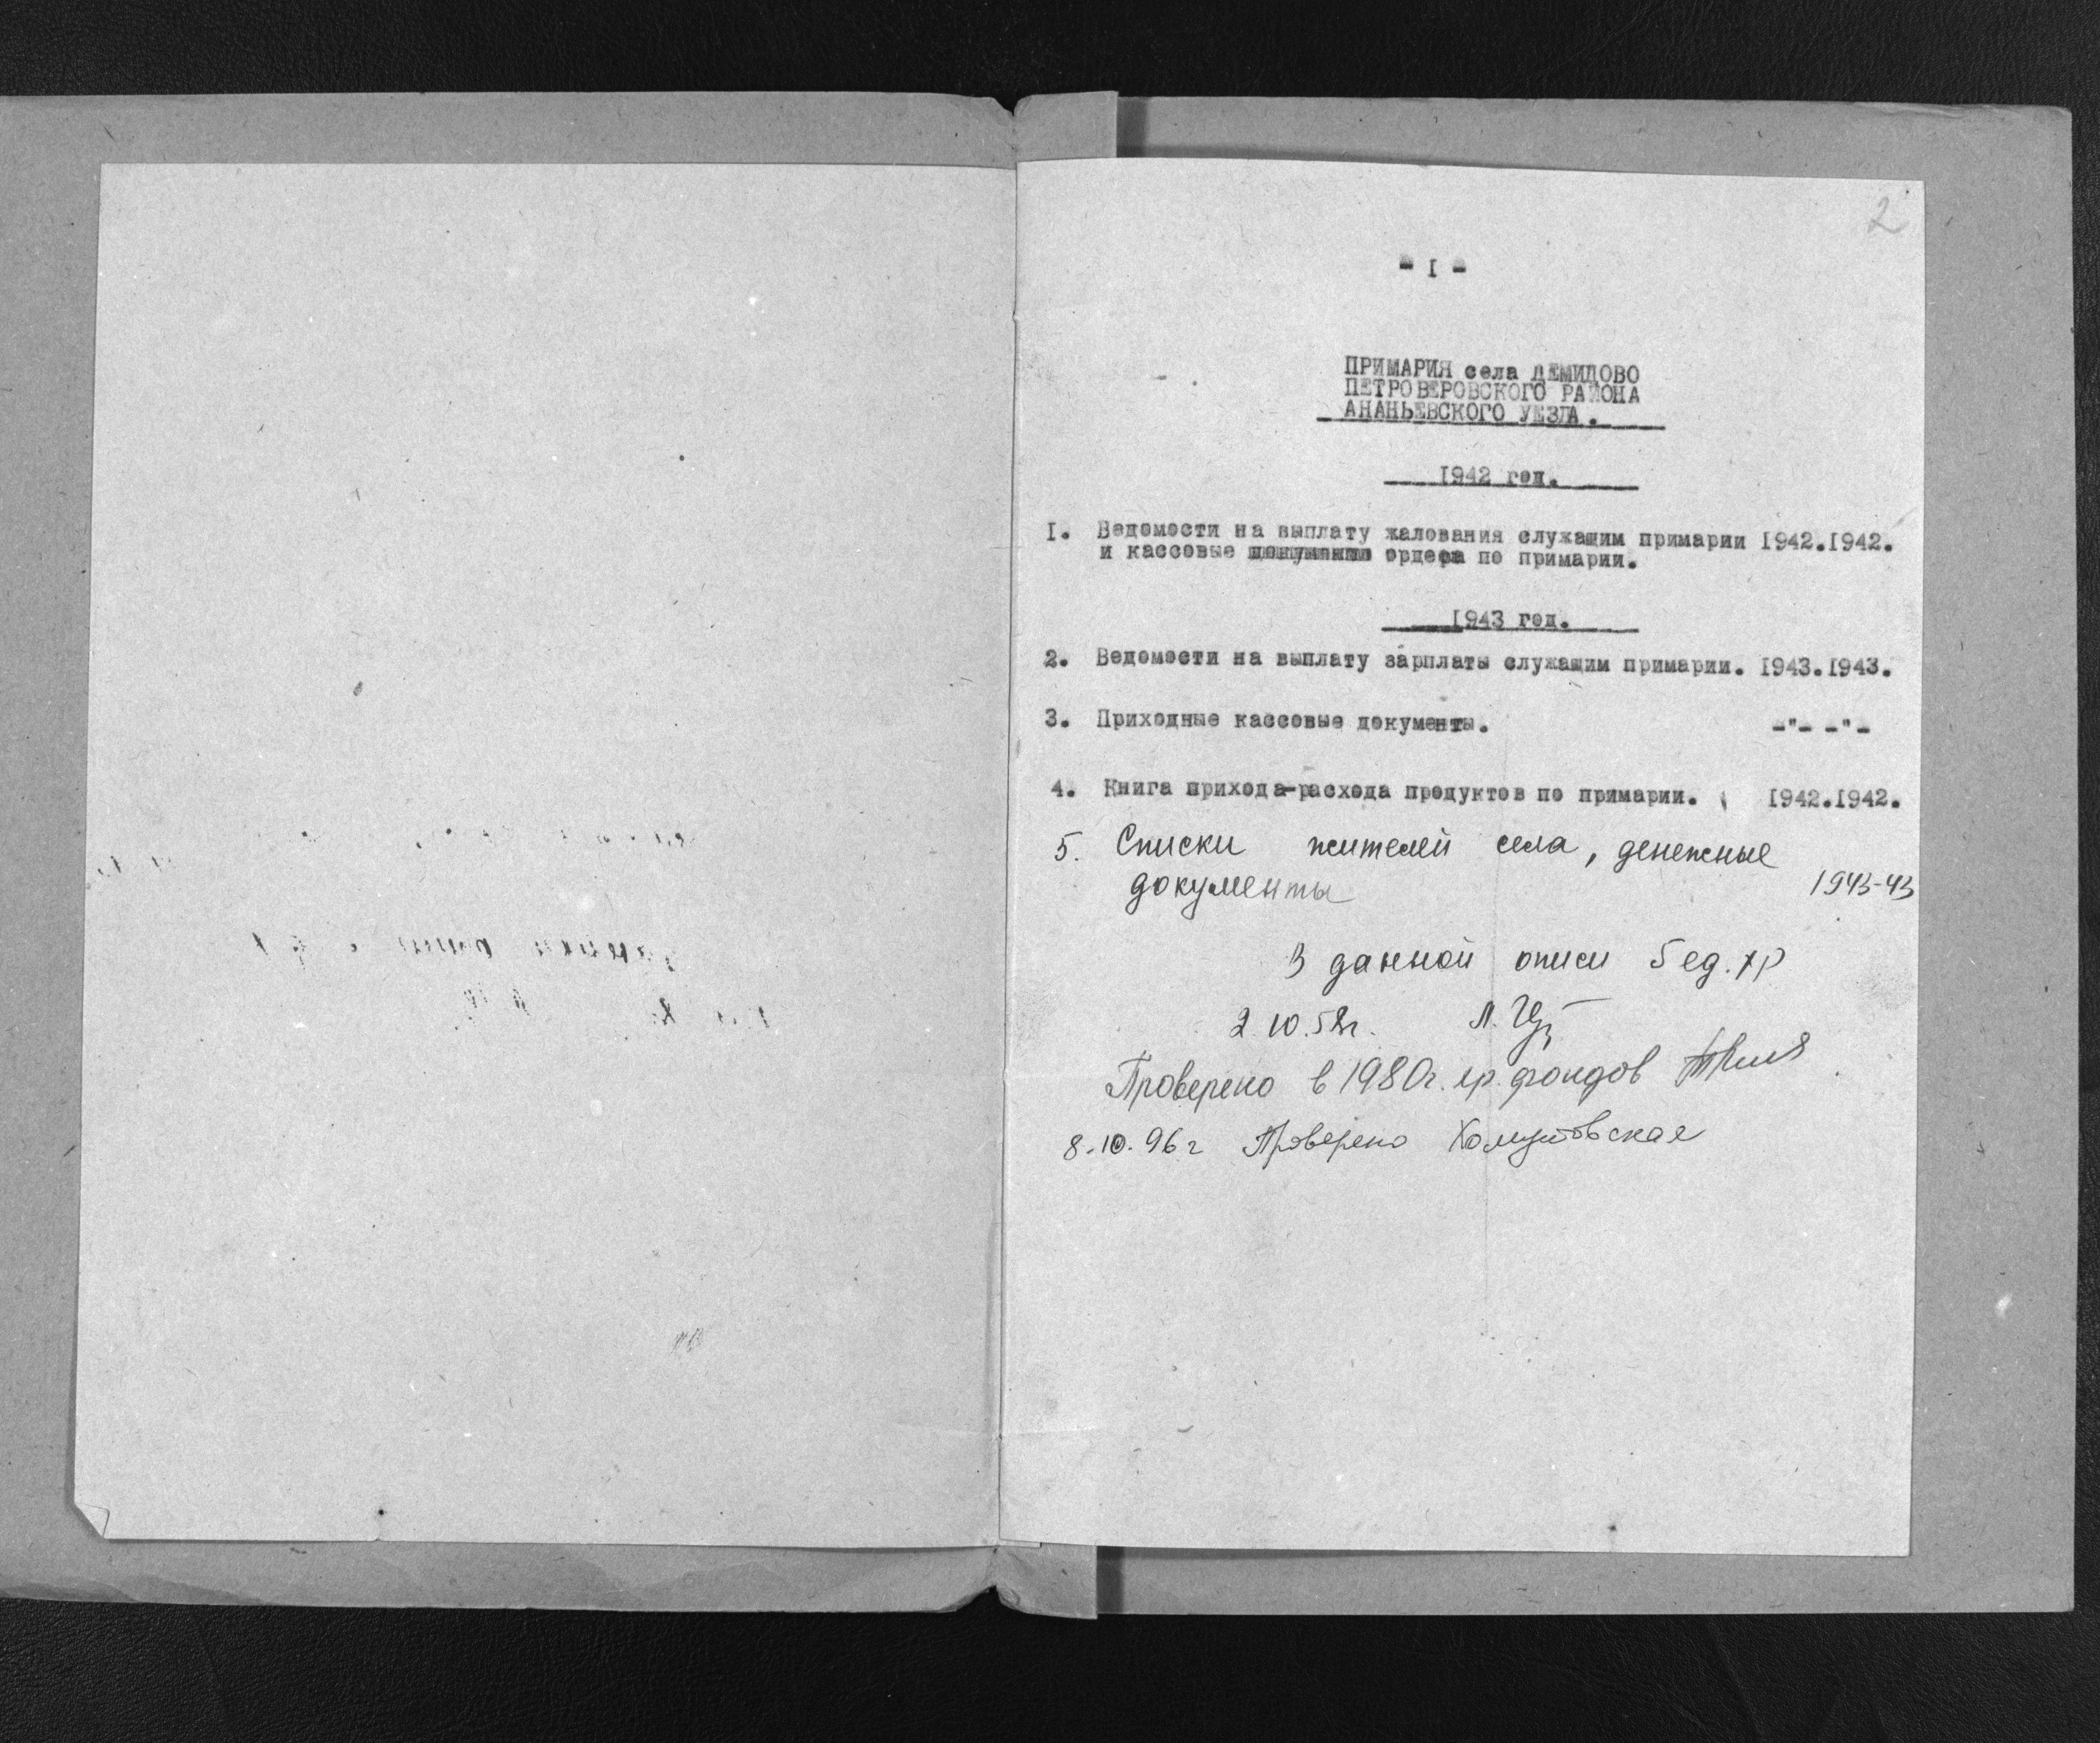 2
- I -
ПРИМАРИЯ села ДЕМИДОВО
ПЕТРОВЕРОВСКОГО РАЙОНА
АНАНЬЕВСКОГО УЕЗДА.
1942 год.
I. Ведомости на выплату жалования служащим примарии I942.I942.
и кассовые ордера по примарии.
I943 год.
2. Ведомости на выплату зарплаты служащим примарии. I943.I943.
3. Приходные кассовые документы. -"- -"-
4. Книга прихода-расхода продуктов по примарии. I942.I942.
5. Списки жителей села, денежные
документы 1943-43
В данной описи 5 ед. хр
2.10.58г. Л.
Проверено в 1980г. гр. фондов
8.10.96г Проверено Хомутовская